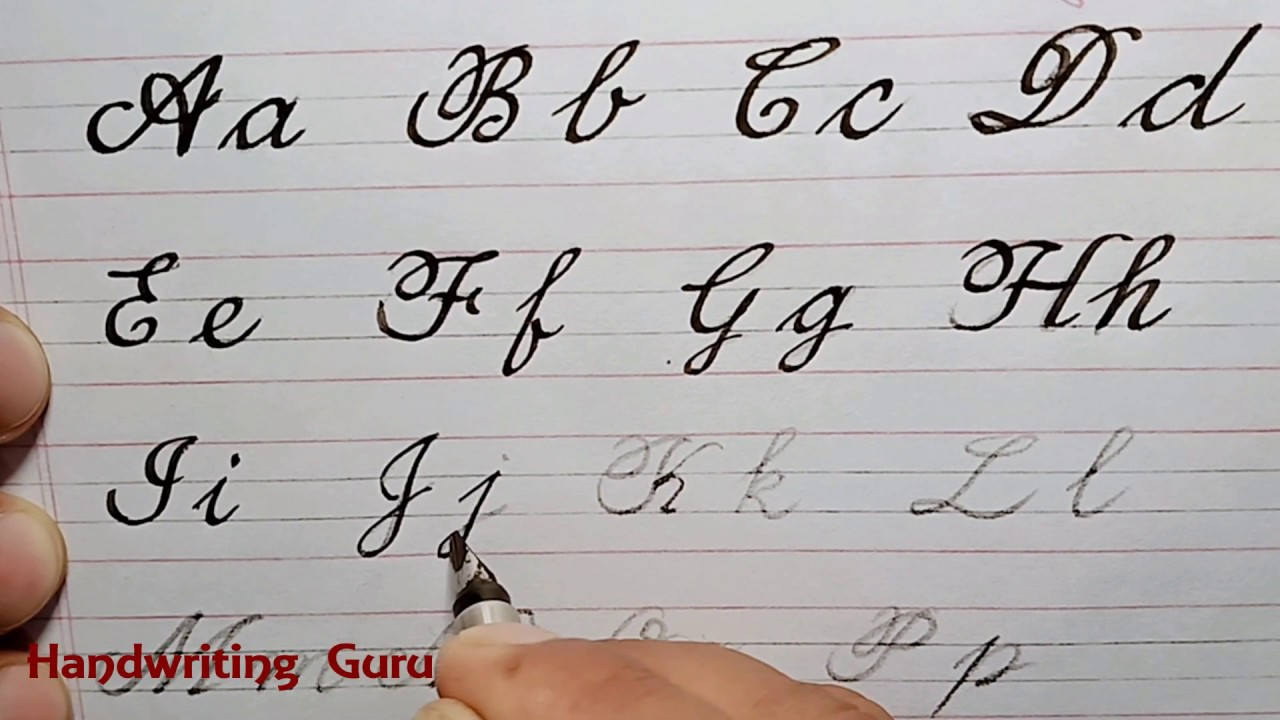 Aa Bb Cc Dd
Ee Ff Gg Hh
Ii Jj Kk Ll
M P p
Handwriting Guru